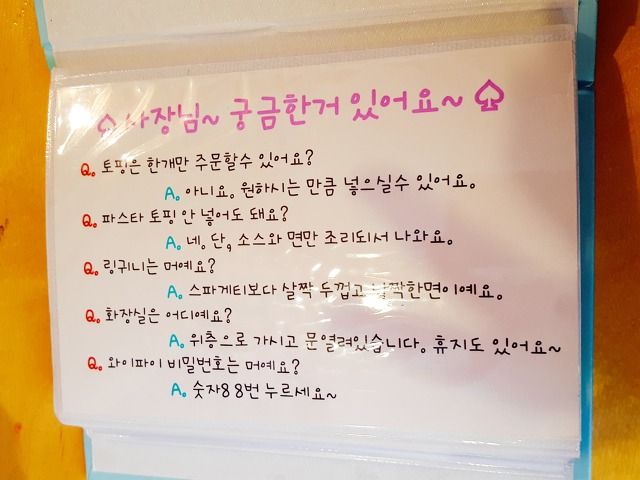 ♤ 사장님~ 궁금한거 있어요~ ♤
Q. 토핑은 한개만 주문할수 있어요?
A. 아니요. 원하시는 만큼 넣으실수 있어요.
Q. 파스타 토핑 안 넣어도 돼요?
A. 네. 단, 소스와 면만 조리되서 나와요.
Q. 링귀니는 머예요?
A. 스파게티보다 살짝 두껍고 납짝한면이예요.
Q. 화장실은 어디예요?
A. 위층으로 가시고 문열려있습니다. 휴지도 있어요~
Q. 와이파이 비밀번호는 머예요?
A. 숫자88번 누르세요~